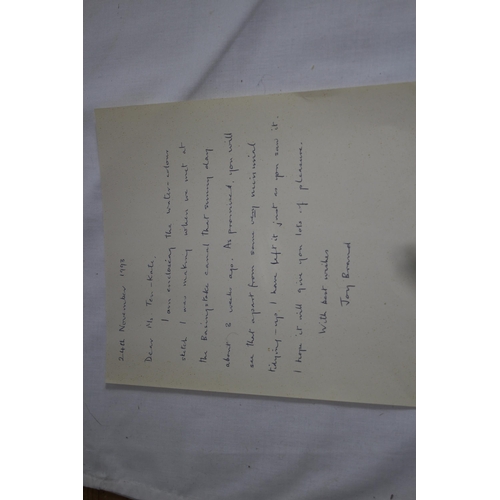 24th November 1993
Dear Mr
I am enclosing the water-colour
sketch I was making when we met at
the Basingstoke canal that sunny day
about 8 weeks ago. As promised, you will
see that apart from some very minimal
tidying-up I have left it just as you saw it.
I hope it will give you lots of pleasure.
With best wishes
Brand